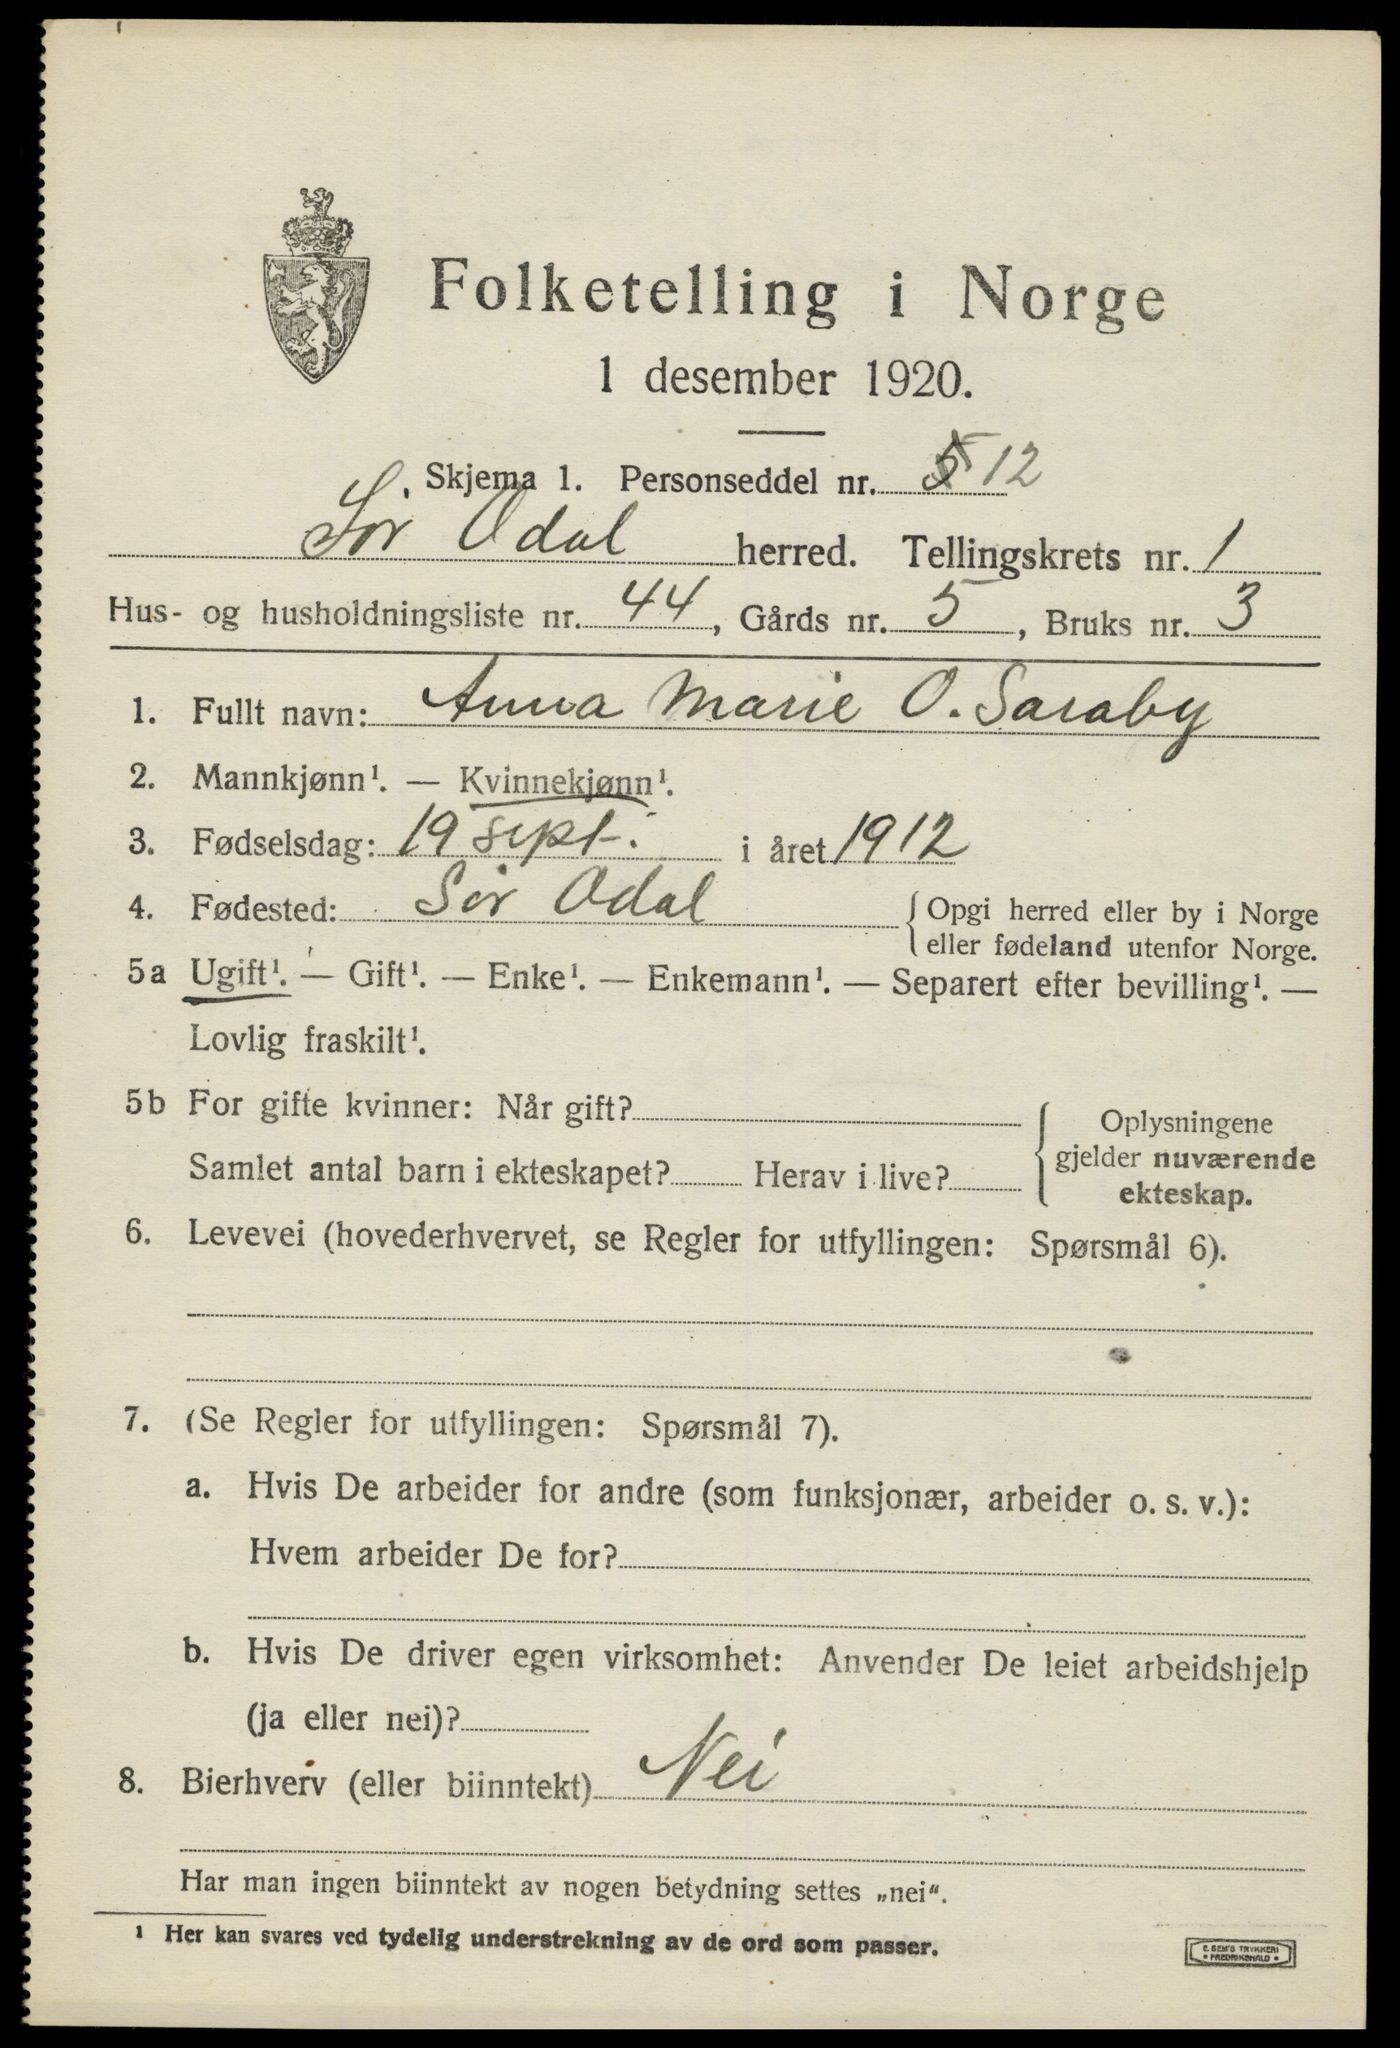 Folketelling i Norge
1 desember 1920.
Skjema 1. Personseddel nr. 5 12
Sør Odal herred. Tellingskrets nr. 1
Hus- og husholdningsliste nr. 44, Gårds nr. 5, Bruks nr. 3
1. Fullt navn: Anna Marie O. Saraby
2. Mannkjønn¹. — Kvinnekjønn¹.
3. Fødselsdag: 19 sept. i året 1912
4. Fødested: Sør Odal {Opgi herred eller by i Norge
eller fødeland utenfor Norge.
5a Ugift¹. — Gift¹. — Enke¹. — Enkemann¹. — Separert efter bevilling¹. —
Lovlig fraskilt¹.
5b For gifte kvinner: Når gift?
Samlet antal barn i ekteskapet? Herav i live?
Oplysningene
gjelder nuværende
ekteskap.
6. Levevei (hovederhvervet, se Regler for utfyllingen: Spørsmål 6).
7. (Se Regler for utfyllingen: Spørsmål 7).
a. Hvis De arbeider for andre (som funksjonær, arbeider o. s. v.):
Hvem arbeider De for?
b. Hvis De driver egen virksomhet: Anvender De leiet arbeidshjelp
(ja eller nei)?
8. Bierhverv (eller biinntekt) Nei
Har man ingen biinntekt av nogen betydning settes „nei“.
¹ Her kan svares ved tydelig understrekning av de ord som passer.
E. SEM'S TRYKKERI
• FREDRIKSHALD •